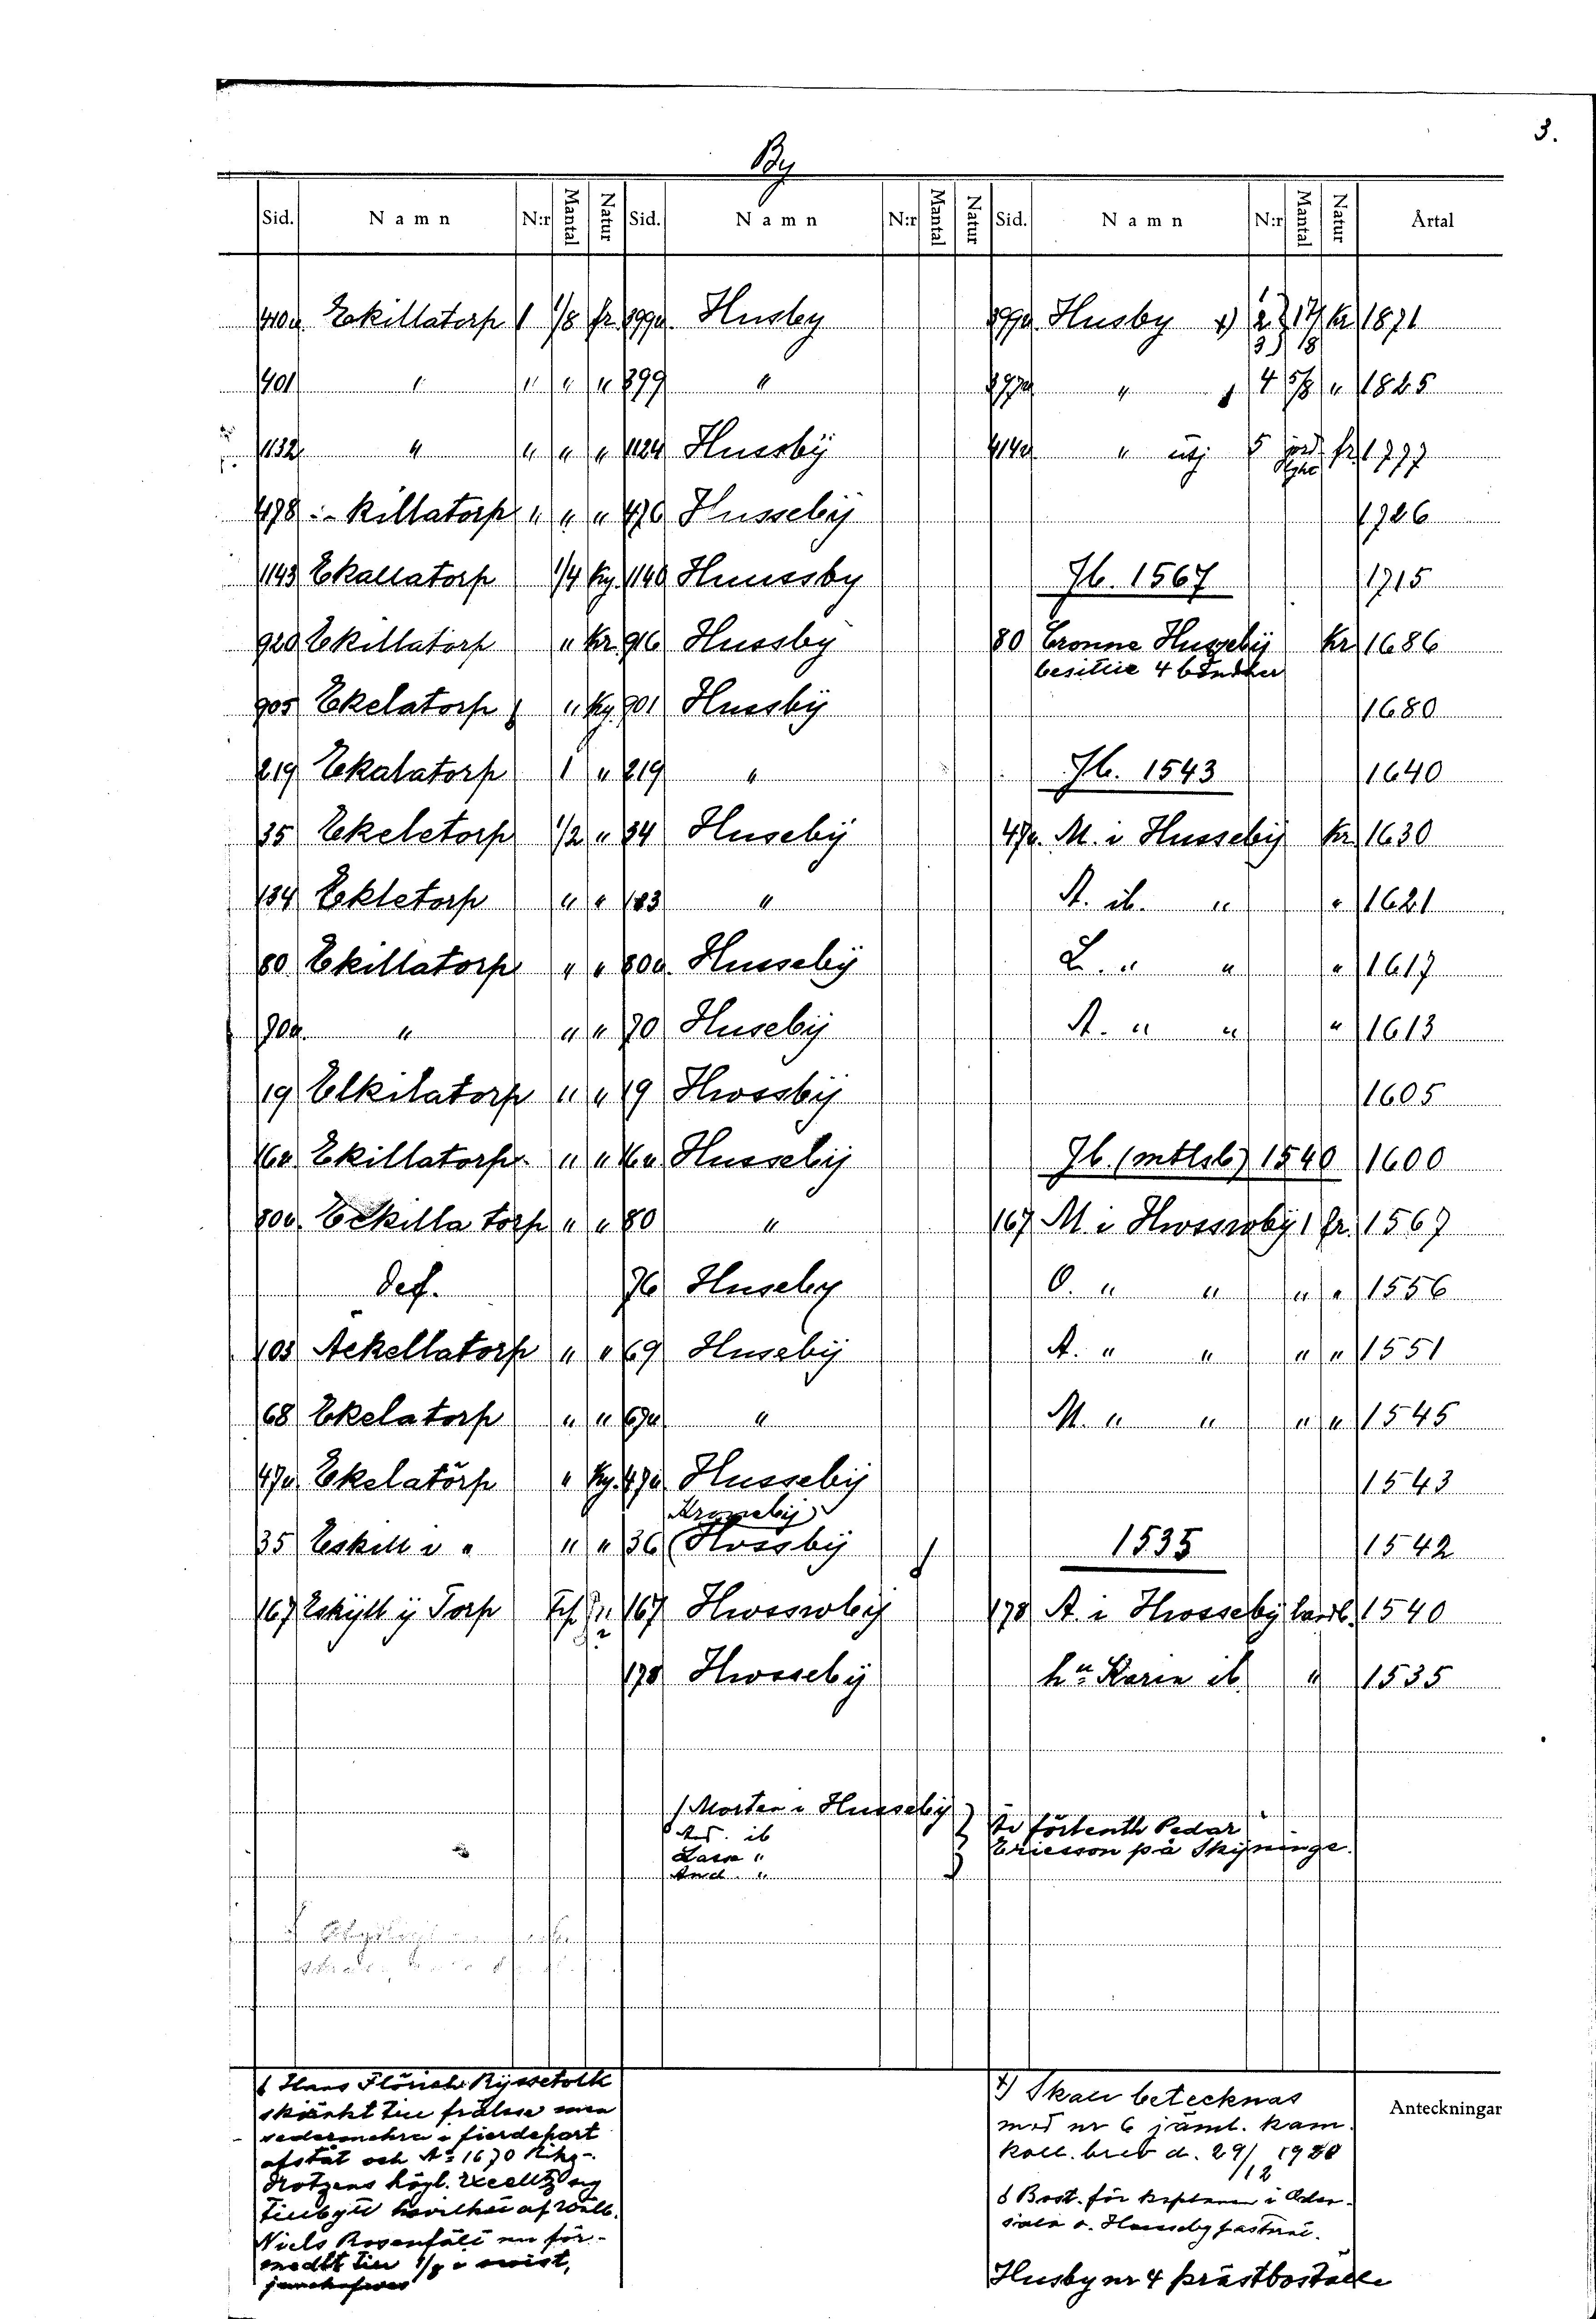 3.
By
Sid. Namn N:r Mantal Natur Sid. Namn N:r Mantal Natur Sid. Namn N:r Mantal Natur Årtal
410a Eskillatorp 1 1/8 fr 399a. Husby 399a Husby x) 1 2 3 } 17/18 kr 1871
401 " " " " 399 " 397a " 4 5/8 " 1825
1132 " " " " 1124 Hussbÿ 414a " utj 5 jord fr 1777
478 :- killatorp " " " 476 Hussebÿ 1726
1143 Ekallatorp 1/4 kg. 1140 Huussby Jb. 1567 1715
920 Ekillatorp " kr 916 Hussby 80 Cronne Hussebÿ kr 1686
besittie 4 bönder
905 Ekelatorp " kg. 901 Hussbÿ 1680
219 Ekalatorp 1 " 219 " Jb. 1543 1640
35 Ekeletorp 1/2 " 34 Husebÿ 47a. M. i Hussebÿ kr 1630
134 Eekletorp " " 133 " A. ib. " " 1621
80 Ekillatorp " " 80a. Hussebÿ L. " " " 1617
70a. " " " 70 Husebÿ A. " " " 1613
19 Elkilatorp " " 19 Hwssbÿ 1605
16a. Ekillatorp " " 16a Hussebÿ Jb. (mtlsb) 1540 1600
80a. Eckilla torp " " 80 " 167 M. i Hwsswbÿ 1 fr. 1567
def. 76 Huseby O. " " " " 1556
103 Aekellatorp " " 69 Husebÿ A. " " " " 1551
68 Ekelatorp " " 67a " M. " " " " 1545
47a. Ekelatörp " kg. 47a Hussebÿ 1543
Kronebÿ
35 Eskill i " " " 36 (Hossbÿ 1535 1542
167 Eskÿll ÿ Torp 167 Hwsswbÿ 178 A. i Hwssebÿ landb. 1540
178 Hwssebÿ hu Karin ib. " 1535
Morten i Hussebÿ
And. ib
Lasse "
And. "
förbenth Pedar
Ericsson på Skÿninge.
Hans Flörich Rÿssetolk
skänkt till frälse men
sedermehra i fierdepart
afståt och Ao 1670 Rikz-
drotzens högl. Excelltz sig
tillbytt hwilket af wälb.
Niels Rosenfält nu för-
medlt till 1/8 i wist,
x) Skall betecknas
med nr 6 jäml. kam.
koll. brev d. 29/12 1920
Bost. för kaplanen i Odens-
Husby pastorat.
Husby nr 4 prästboställe
Anteckningar